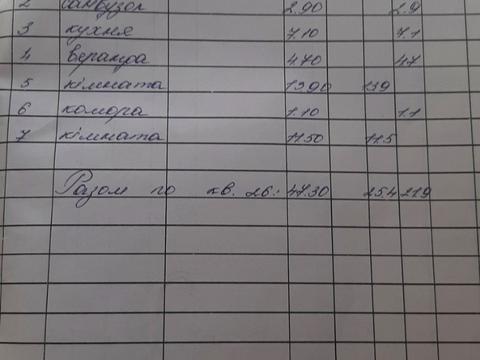 2 санвузол 2.90 2.9
3 кухня 7.10 7.1
4 веранда 4.70 4.7
5 кімната 13.90 13.9
6 комора 1.10 1.1
7 кімната 11.50 11.5
Разом по кв. 26: 47.30 25.4 21.9